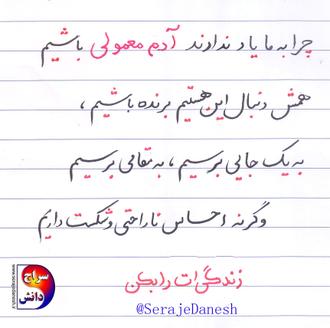 چرا به ما یاد ندادند آدم معمولی باشیم
همش دنبال این هستیم برنده باشیم ،
به یک جایی برسیم ، به مقامی برسیم
وگرنه احساس ناراحتی و شکست داریم
زندگی ات را بکن
@SerajeDanesh
سراج
دانش